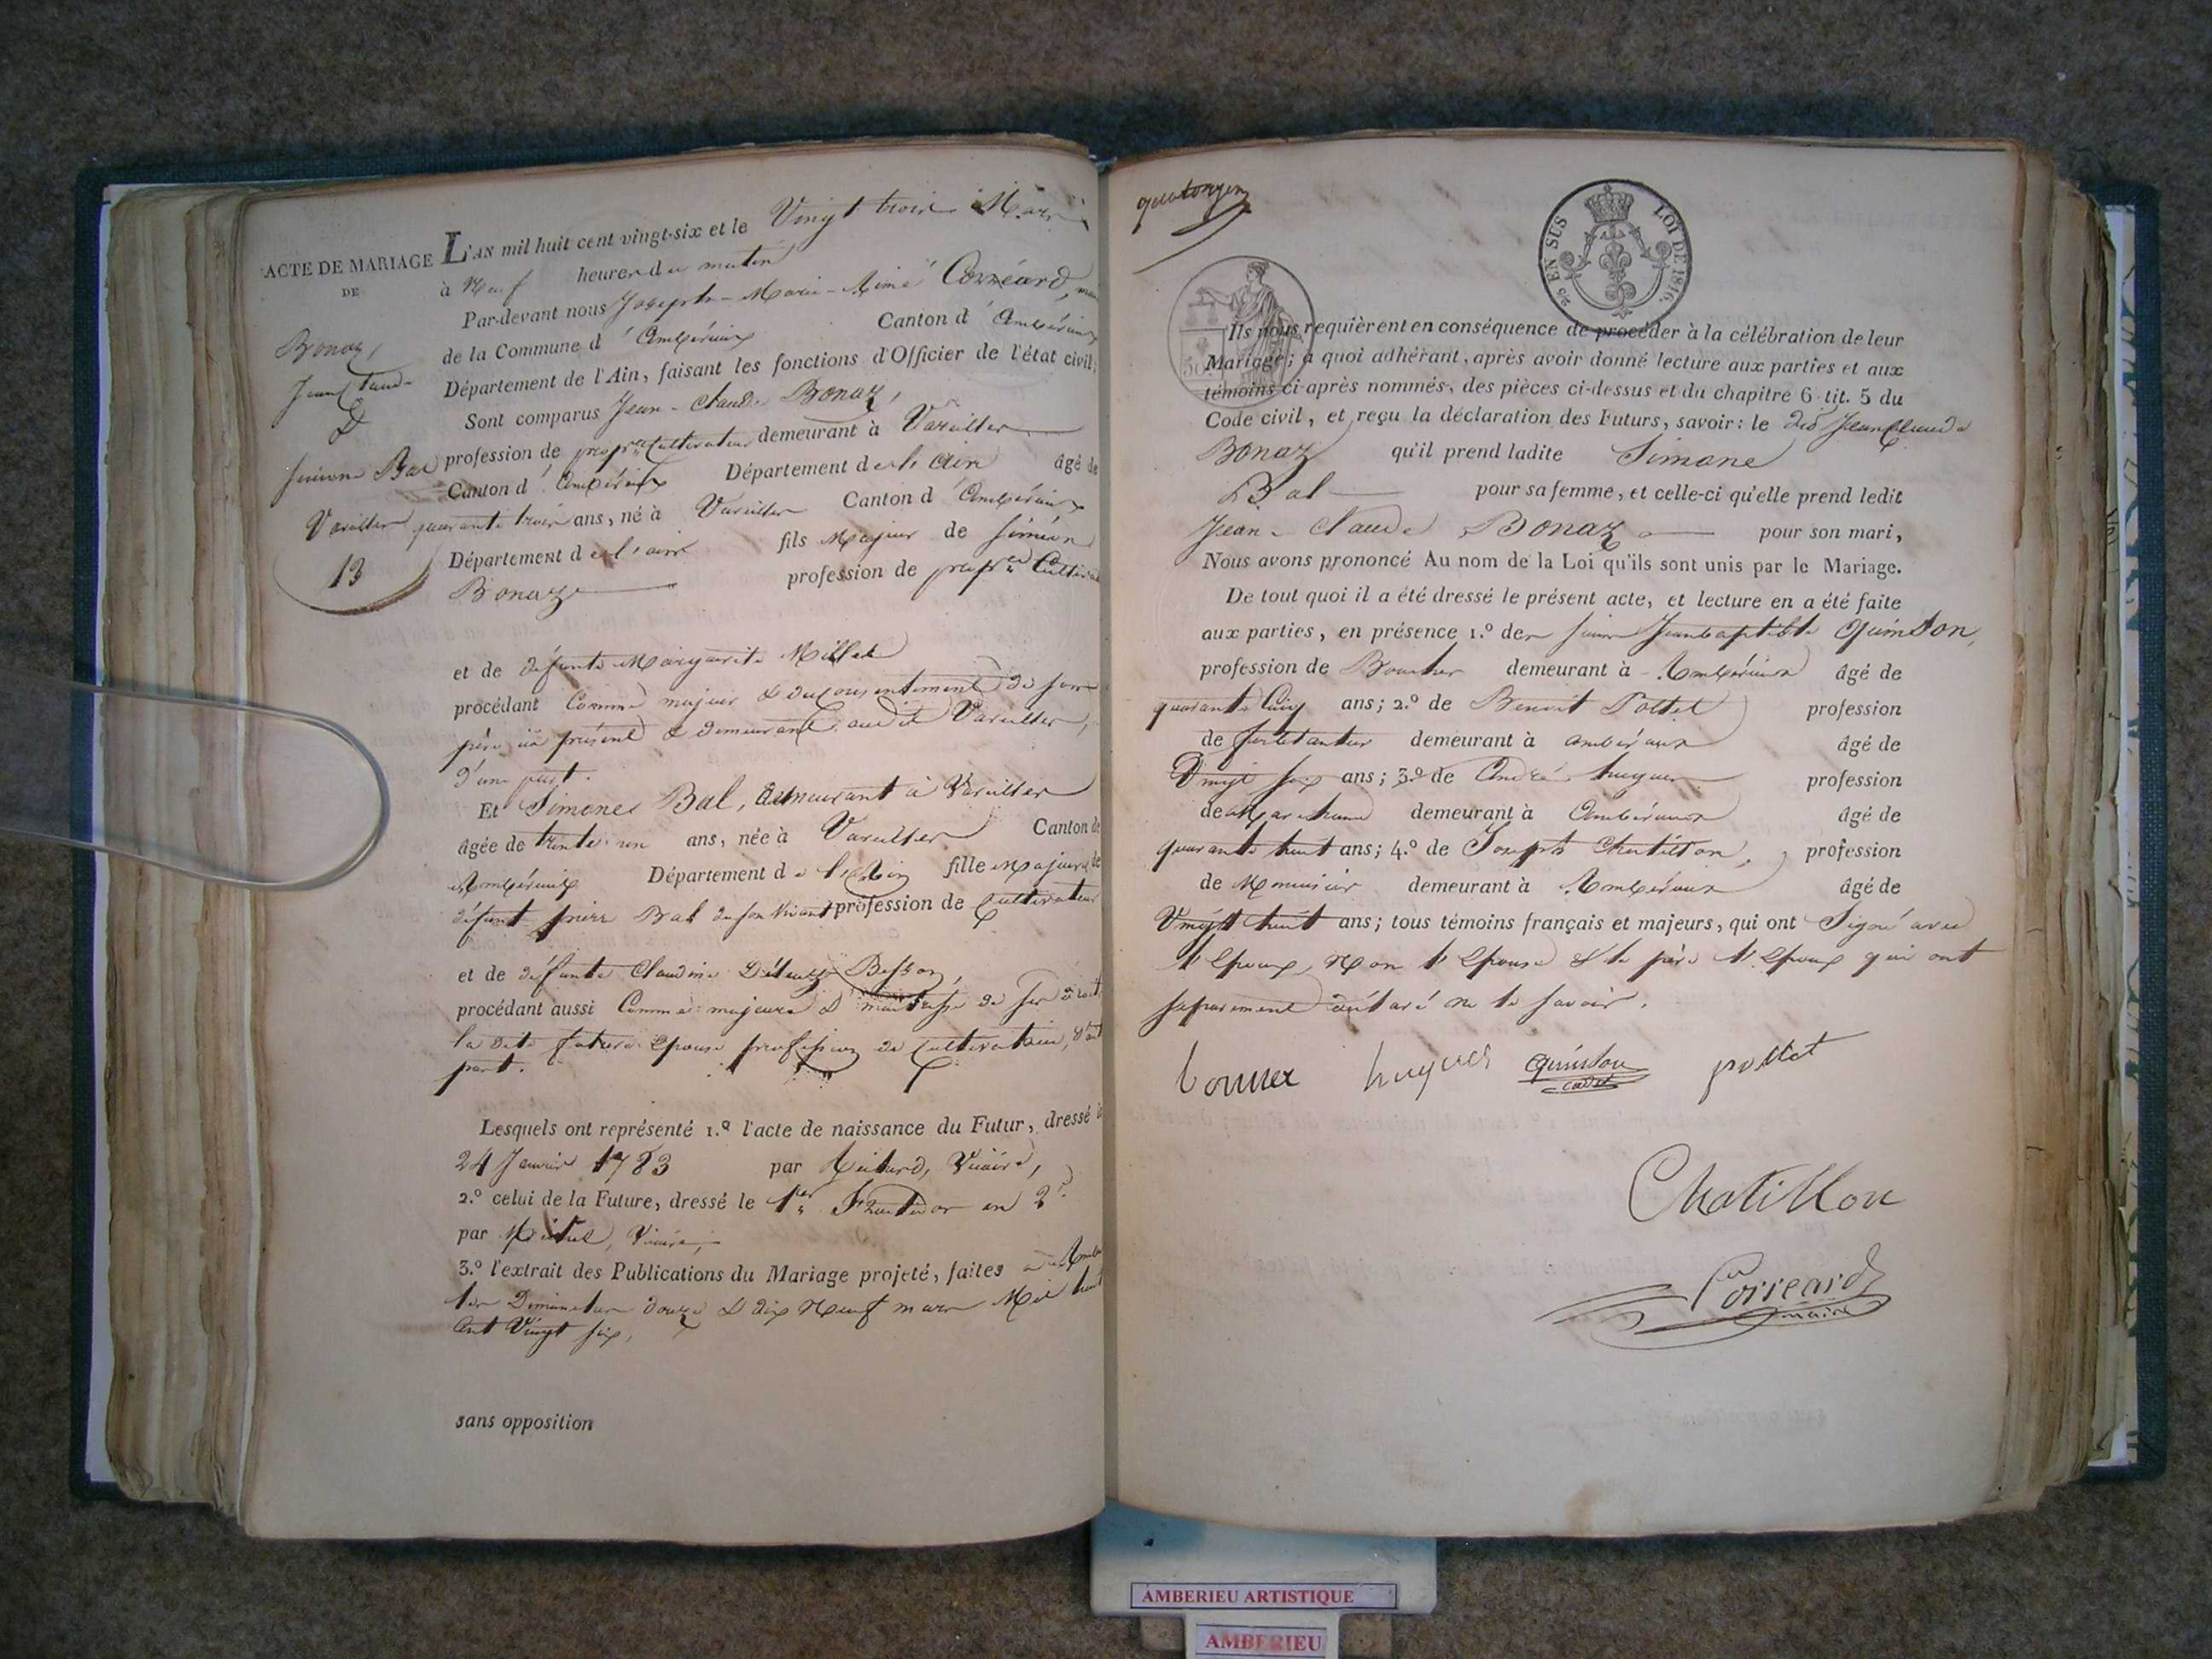 ACTE DE MARIAGE
DE
Bonaz,
Jean Claude
&
Simone Bal
Vareilles
13
L'AN mil huit cent vingt-six et le Vingt trois Mars
à Neuf heures du matin
Par-devant nous Joseph-Marie-Aimé Corréard, maire
de la Commune d'Ambérieux Canton d'Ambérieux
Département de l'Ain, faisant les fonctions d'Officier de l'état civil;
Sont comparus Jean-Claude Bonaz,
profession de propre Cultivateur demeurant à Vareilles
Canton d'Ambérieux Département de l'ain âgé de
quarante trois ans, né à Vareilles Canton d'Ambérieux
Département de l'ain fils Majeur de Siméon
Bonaz profession de propre Cultivat
et de défunte Marguerite Millet
procédant Comme majeur & du consentement de son
père ici présent & demeurant audit Vareilles,
d'une part.
Et Simone Bal, demeurant à Vareilles
âgée de trente un ans, née à Vareilles Canton de
Ambérieux Département de l'Ain fille Majeure de
défunt pierre Bal de son vivant profession de Cultivateur
et de défunte Claudine Besson,
procédant aussi Comme majeure & maitresse de ses droits
la dite future Epouse profession de Cultivatrice, d'aut
part.
Lesquels ont représenté 1.º l'acte de naissance du Futur, dressé le
24 Janvier 1783 par Vicaire,
2.º celui de la Future, dressé le 1er fructidor an 2
par Vicaire,
3.º l'extrait des Publications du Mariage projeté, faites
les Dimanches douze & dix Neuf mars Mil huit
Cent Vingt six,
sans opposition
quatorzien
25 EN SUS LOI DE 1816.
Ils nous requièrent en conséquence de procéder à la célébration de leur
Mariage; à quoi adhérant, après avoir donné lecture aux parties et aux
témoins ci-après nommés, des pièces ci-dessus et du chapitre 6 tit. 5 du
Code civil, et reçu la déclaration des Futurs, savoir: le dit Jean Claude
Bonaz qu'il prend ladite Simone
Bal pour sa femme, et celle-ci qu'elle prend ledit
Jean-Claude Bonaz pour son mari,
Nous avons prononcé Au nom de la Loi qu'ils sont unis par le Mariage.
De tout quoi il a été dressé le présent acte, et lecture en a été faite
aux parties, en présence 1.º de Jean baptiste Quinson,
profession de Boucher demeurant à Ambérieux âgé de
quarante Cinq ans; 2.º de Benoit Pottet profession
de demeurant à ambérieux âgé de
Vingt six ans; 3.º de André hugues profession
de Marchand demeurant à Ambérieux âgé de
quarante huit ans; 4.º de Joseph Chatillon, profession
de Menuisier demeurant à Ambérieux âgé de
Vingt huit ans; tous témoins français et majeurs, qui ont Signé avec
l'Epoux, Non l'Epouse & le père l'Epoux qui ont
séparément déclaré ne le savoir.
bonnaz hugues quinson cadet pottet
Chatillon
Correard
maire
AMBERIEU ARTISTIQUE
AMBERIEU